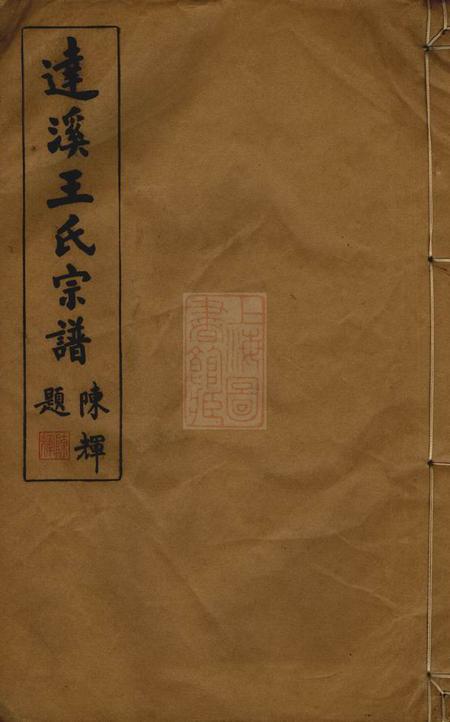 達溪王氏宗譜
陳輝
題
上海圖
書館藏